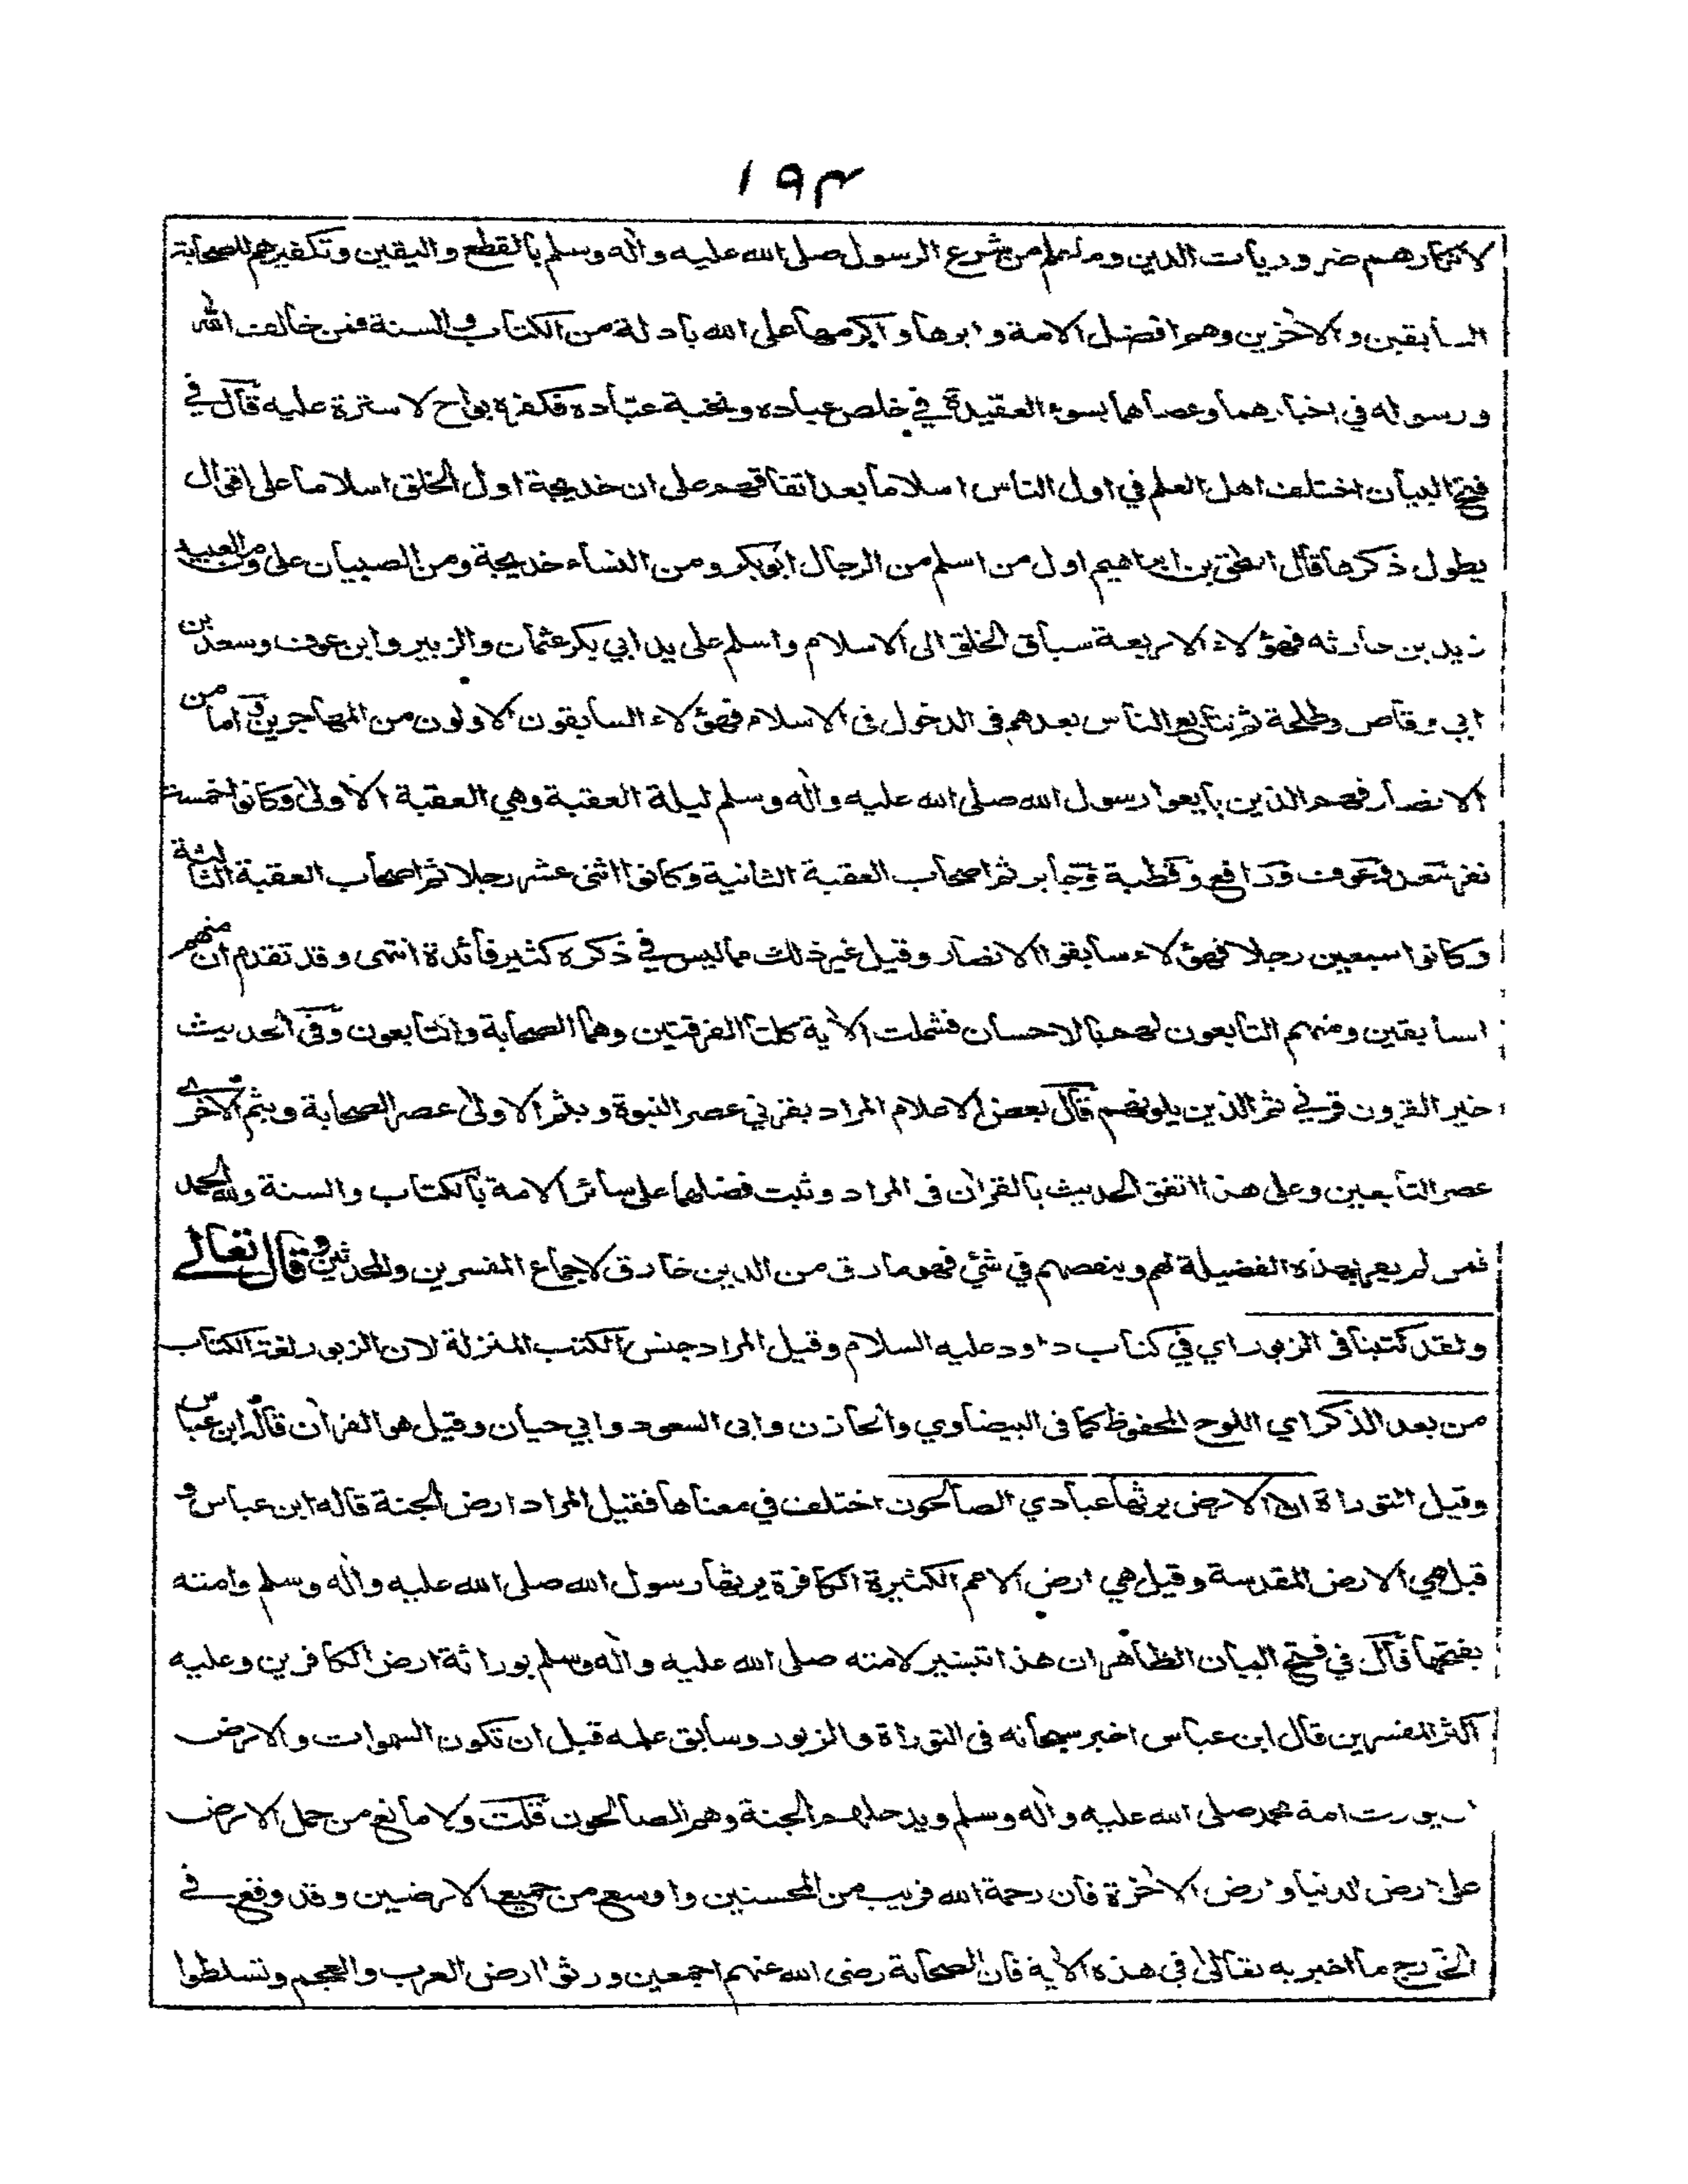 ١٩٣
لانكارهم ضروريات الدين وما علم من شرع الرسول صلى الله عليه وآله وسلم بالقطع واليقين وتكفيرهم للصحابة
السابقين والآخرين وهم افضل الامة وابرها واكرمها على الله بادلة من الكتاب والسنة فمن خالف الله
ورسوله في اخبارهما وعصاهما بسوء العقيدة في خلص عباده ونخبة عبّاده فكفره بواح لا سترة عليه قال في
فتح البيان اختلف اهل العلم في اول الناس اسلاما بعد اتفاقهم على ان خديجة اول الخلق اسلاما على اقوال
يطول ذكرها قال اسحق بن ابراهيم اول من اسلم من الرجال ابوبكر ومن النساء خديجة ومن الصبيان على ومن العبيد
زيد بن حارثه فهؤلاء الاربعة سباق الخلق الى الاسلام واسلم على يد ابي بكر عثمان والزبير وابن عوف وسعد بن
ابي وقاص وطلحة ثم تتابع الناس بعدهم في الدخول فى الاسلام فهؤلاء السابقون الاولون من المهاجرين واما من
الانصار فهم الذين بايعوا رسول الله صلى الله عليه وآله وسلم ليلة العقبة وهي العقبة الاولى وكانوا خمسة
نفر سعد وعوف ورافع وقطبة وجابر ثم اصحاب العقبة الثانية وكانوا اثنى عشر رجلا ثم اصحاب العقبة الثالثة
وكانوا سبعين رجلا فهؤلاء سابقوا الانصار وقيل غير ذلك مما ليس في ذكره كثير فائدة انتهى وقد تقدم ان منهم
السابقين ومنهم التابعون لهم بالاحسان فشملت الآية كلتا الفرقتين وهما الصحابة والتابعون وفي الحديث
خير القرون قرني ثم الذين يلونهم قال بعض الاعلام المراد بقرني عصر النبوة وبثم الاولى عصر الصحابة وبثم الاخرى
عصر التابعين وعلى هذا اتفق الحديث بالقرآن فى المراد وثبت فضلهما على سائر الامة بالكتاب والسنة ولله الحمد
فمن لم يعرف هذه الفضيلة لهم وينقصهم في شئ فهو مارق من الدين خارق لاجماع المفسرين والمحدثين وقال تعالى
ولقد كتبنا فى الزبور اي في كتاب داود عليه السلام وقيل المراد جنس الكتب المنزلة لان الزبور لغة الكتاب
من بعد الذكر اي اللوح المحفوظ كما فى البيضاوي والخازن وابى السعود وابي حيان وقيل هو القرآن قاله ابن عباس
وقيل التوراة ان الارض يرثها عبادي الصالحون اختلف في معناها فقيل المراد ارض الجنة قاله ابن عباس و
قيل هي الارض المقدسة وقيل هي ارض الامم الكثيرة الكافرة يرثها رسول الله صلى الله عليه وآله وسلم وامته
بفتحها قال في فتح البيان الظاهر ان هذا تبشير لامته صلى الله عليه وآله وسلم بوراثة ارض الكافرين وعليه
اكثر المفسرين قال ابن عباس اخبر سبحانه فى التوراة والزبور وسابق علمه قبل ان تكون السموات والارض
ان يورث امة محمد صلى الله عليه وآله وسلم ويدخلهم الجنة وهم الصالحون قلت ولا مانع من حمل الارض
على ارض الدنيا وارض الآخرة فان رحمة الله قريب من المحسنين واوسع من جميع الارضين وقد وقع في
الخارج ما اخبر به تعالى في هذه الآية فان الصحابة رضى الله عنهم اجمعين ورثوا ارض العرب والعجم وتسلطوا